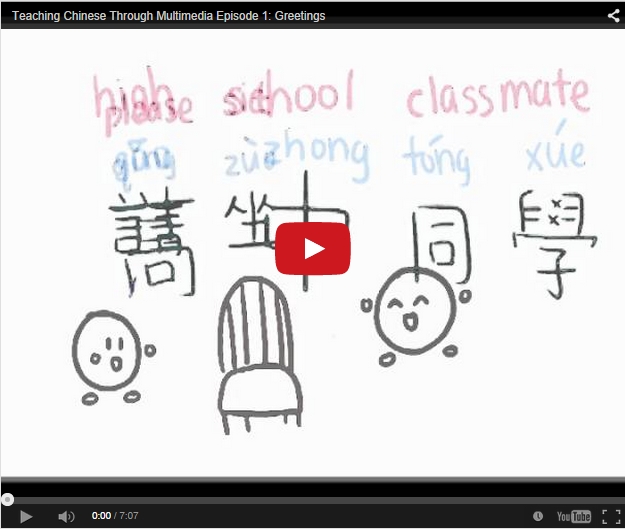 Teaching Chinese Through Multimedia Episode 1: Greetings
high school classmate
please
zhong tóng xúe
坐 中 同 學
0:00 / 7:07
YouTube